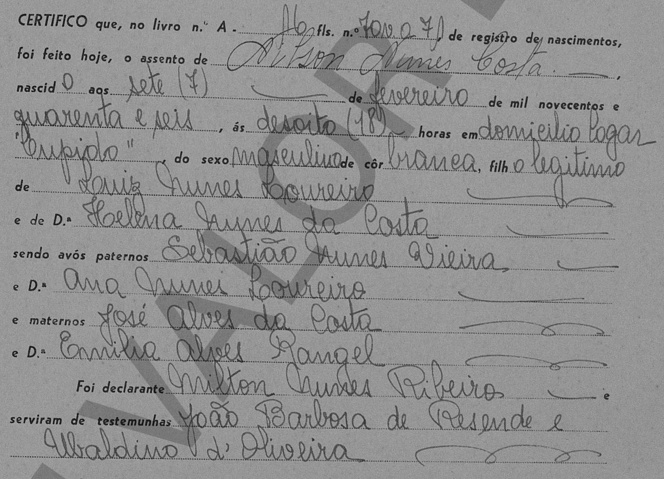 CERTIFICO que, no livro n.º A - 16 fls. n.º 70v a 71 de registro de nascimentos,
foi feito hoje, o assento de Nilson Nunes Costa.
nascid o aos sete (7) de fevereiro de mil novecentos e
quarenta e seis, ás desoito (18) horas em domicilio logar
"Cupido", do sexo masculino de côr branca, filh o legitimo
de Luiz Nunes Loureiro
e de D.ª Helena Nunes da Costa
sendo avós paternos Sebastião Nunes Vieira
e D.ª Ana Nunes Loureiro
e maternos José Alves da Costa
e D.ª Emilia Alves Rangel
Foi declarante Milton Nunes Ribeiro e
serviram de testemunhas João Barbosa de Resende e
Ubaldino d'Oliveira
VALOR